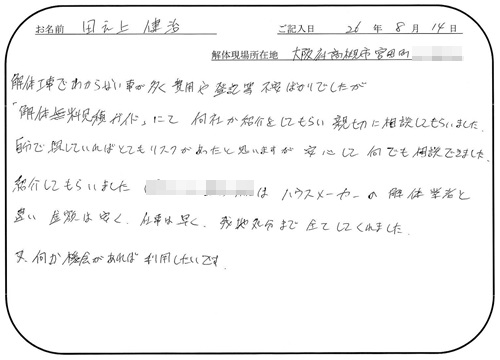 お名前 田之上 健治 ご記入日 26 年 8 月 14 日
解体現場所在地 大阪府高槻市宮田町
解体工事でわからない事が多く 費用や 登記等 不安ばかりでしたが
「解体無料見積ガイド」にて 何社か紹介をしてもらい 親切に相談してもらいました。
自分で探していればとてもリスクがあったと思いますが 安心して 何でも相談できました。
紹介してもらいました ( は ハウスメーカーの 解体業者と
違い 金額は安く、仕事は早く、残地処分まで 全てしてくれました。
又、何か機会があれば 利用したいです。